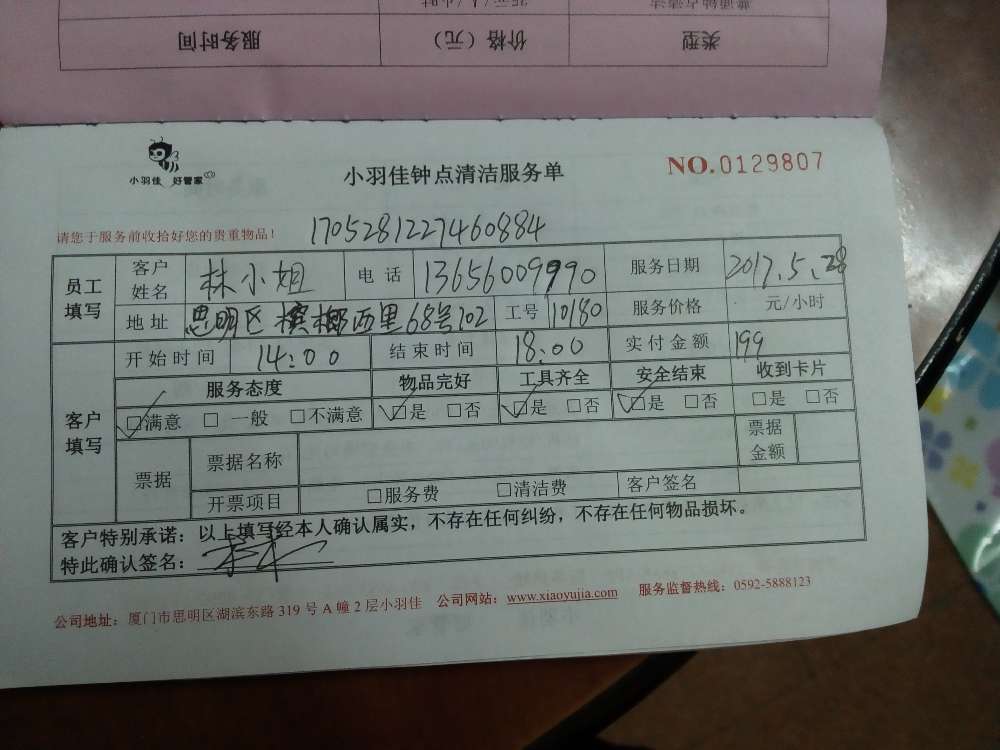 普通钟点清洁 35元/人/小时
类型 价格（元） 服务时间
小羽佳 好管家
小羽佳钟点清洁服务单
NO.0129807
请您于服务前收拾好您的贵重物品！ 17052812274460884
员工填写 客户姓名 林小姐 电话 13656009990 服务日期 2017.5.28
地址 思明区槟榔西里68号102 工号 10180 服务价格 元/小时
客户填写 开始时间 14:00 结束时间 18:00 实付金额 199
服务态度 物品完好 工具齐全 安全结束 收到卡片
☑满意 □一般 □不满意 ☑是 □否 ☑是 □否 ☑是 □否 □是 □否
票据 票据名称 票据金额
开票项目 □服务费 □清洁费 客户签名
客户特别承诺：以上填写经本人确认属实，不存在任何纠纷，不存在任何物品损坏。
特此确认签名：
公司地址：厦门市思明区湖滨东路319号A幢2层小羽佳 公司网站：www.xiaoyujia.com 服务监督热线：0592-5888123